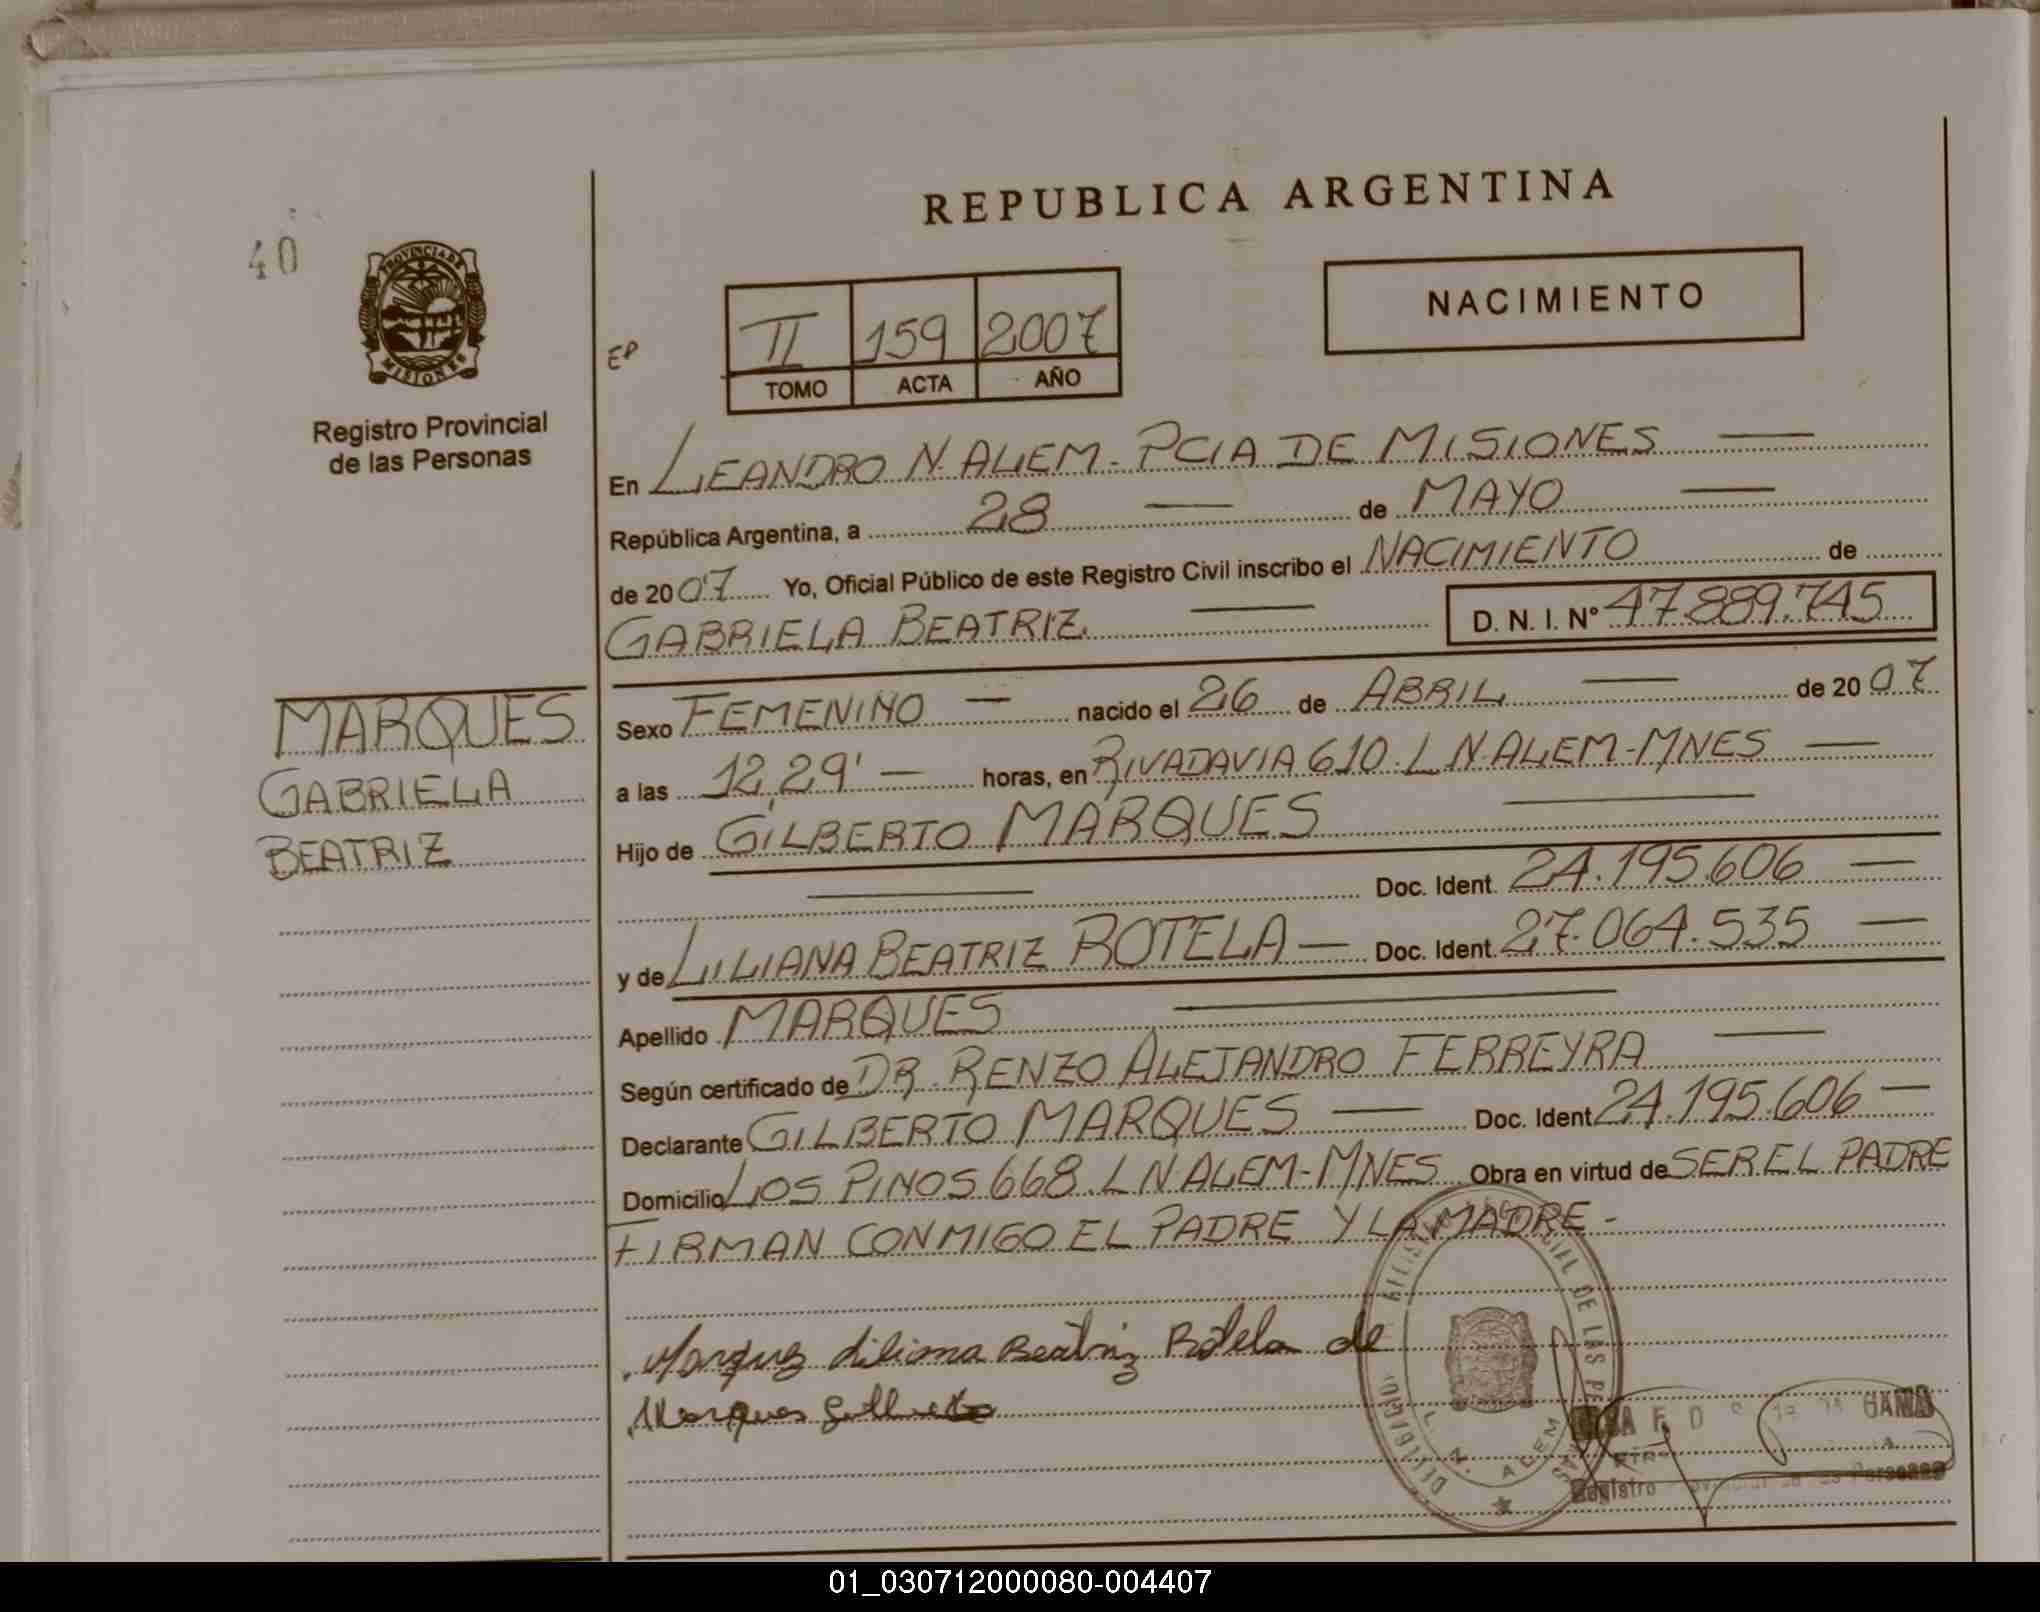 REPUBLICA ARGENTINA
40
PROVINCIA DE
MISIONES
Registro Provincial
de las Personas
EP
II 159 2007
TOMO ACTA AÑO
NACIMIENTO
En LEANDRO N. ALEM - PCIA DE MISIONES —
República Argentina, a 28 — de MAYO —
de 2007 Yo, Oficial Público de este Registro Civil inscribo el NACIMIENTO de
GABRIELA BEATRIZ — D. N. I. Nº 47.889.745
MARQUES
GABRIELA
BEATRIZ
Sexo FEMENINO — nacido el 26 de ABRIL — de 2007
a las 12,29' — horas, en RIVADAVIA 610. L N. ALEM-MNES —
Hijo de GILBERTO MARQUES —
— Doc. Ident. 24.195.606 —
y de LILIANA BEATRIZ ROTELA — Doc. Ident. 27.064.535 —
Apellido MARQUES —
Según certificado de DR. RENZO ALEJANDRO FERREYRA —
Declarante GILBERTO MARQUES — Doc. Ident 24.195.606 —
Domicilio LOS PINOS 668. L N. ALEM-MNES Obra en virtud de SER EL PADRE
FIRMAN CONMIGO EL PADRE Y LA MADRE -
Liliana Beatriz Rotela de
Marques
L. N. ALEM
Registro Personas
01_030712000080-004407